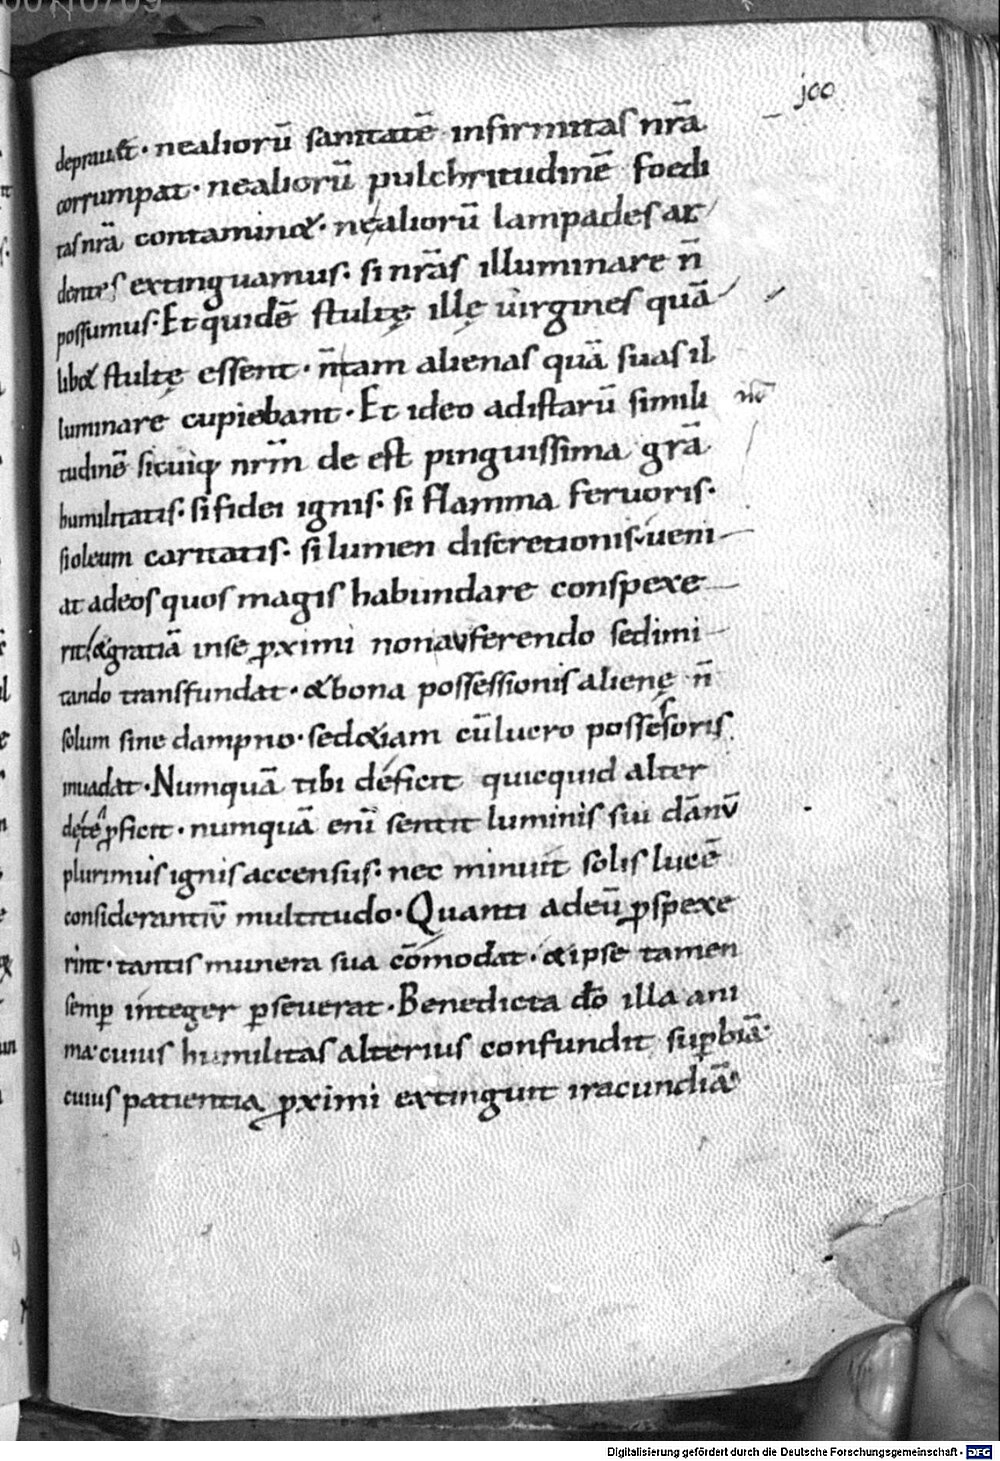 100
deprauet · nealiorū sanitatē infirmitas nr̄a
corrumpat · nealiorū pulchritudinē foedi
tas nr̄a contaminet · nealiorū lampades ar
dentes extinguamus · si nr̄as illuminare n̄
possumus · Et quidē stultę illę uirgines quā
libet stultę essent · n̄ tam alienas quā suas il
luminare cupiebant · Et ideo adistarū simili
tudinē sicuiq; nr̄m de est pinguissima grā
humilitatis · si fidei ignis · si flamma feruoris ·
si oleum caritatis · si lumen discretionis · ueni
at adeos quos magis habundare conspexe
rit & gratiā inse ꝓximi non auferendo sed imi
tando transfundat · & bona possessionis alienę n̄
solum sine dampno · sed & iam cū lucro possessoris
inuadat · Numquā tibi deficit quicquid alter
de te ꝓficit · numquā enī sentit luminis sui dānū
plurimus ignis accensus · nec minuit solis lucē
considerantiū multitudo · Quanti adeū ꝓspexe
rint · tantis munera sua cōmodat · & ipse tamen
semp̄ integer ꝑseuerat · Benedicta do illa ani
ma · cuius humilitas alterius confundit suꝑbiā ·
cuius patientia ꝓximi extinguit iracundiā ·
Digitalisierung gefördert durch die Deutsche Forschungsgemeinschaft - DFG